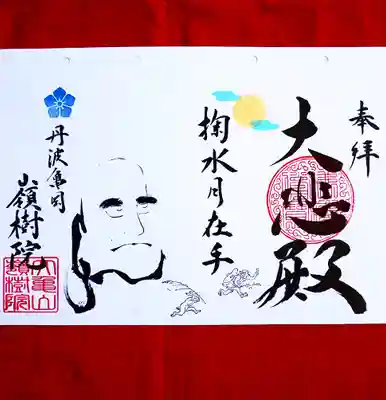 奉拝
大悲殿
掬水月在手
丹波亀岡
嶺樹院